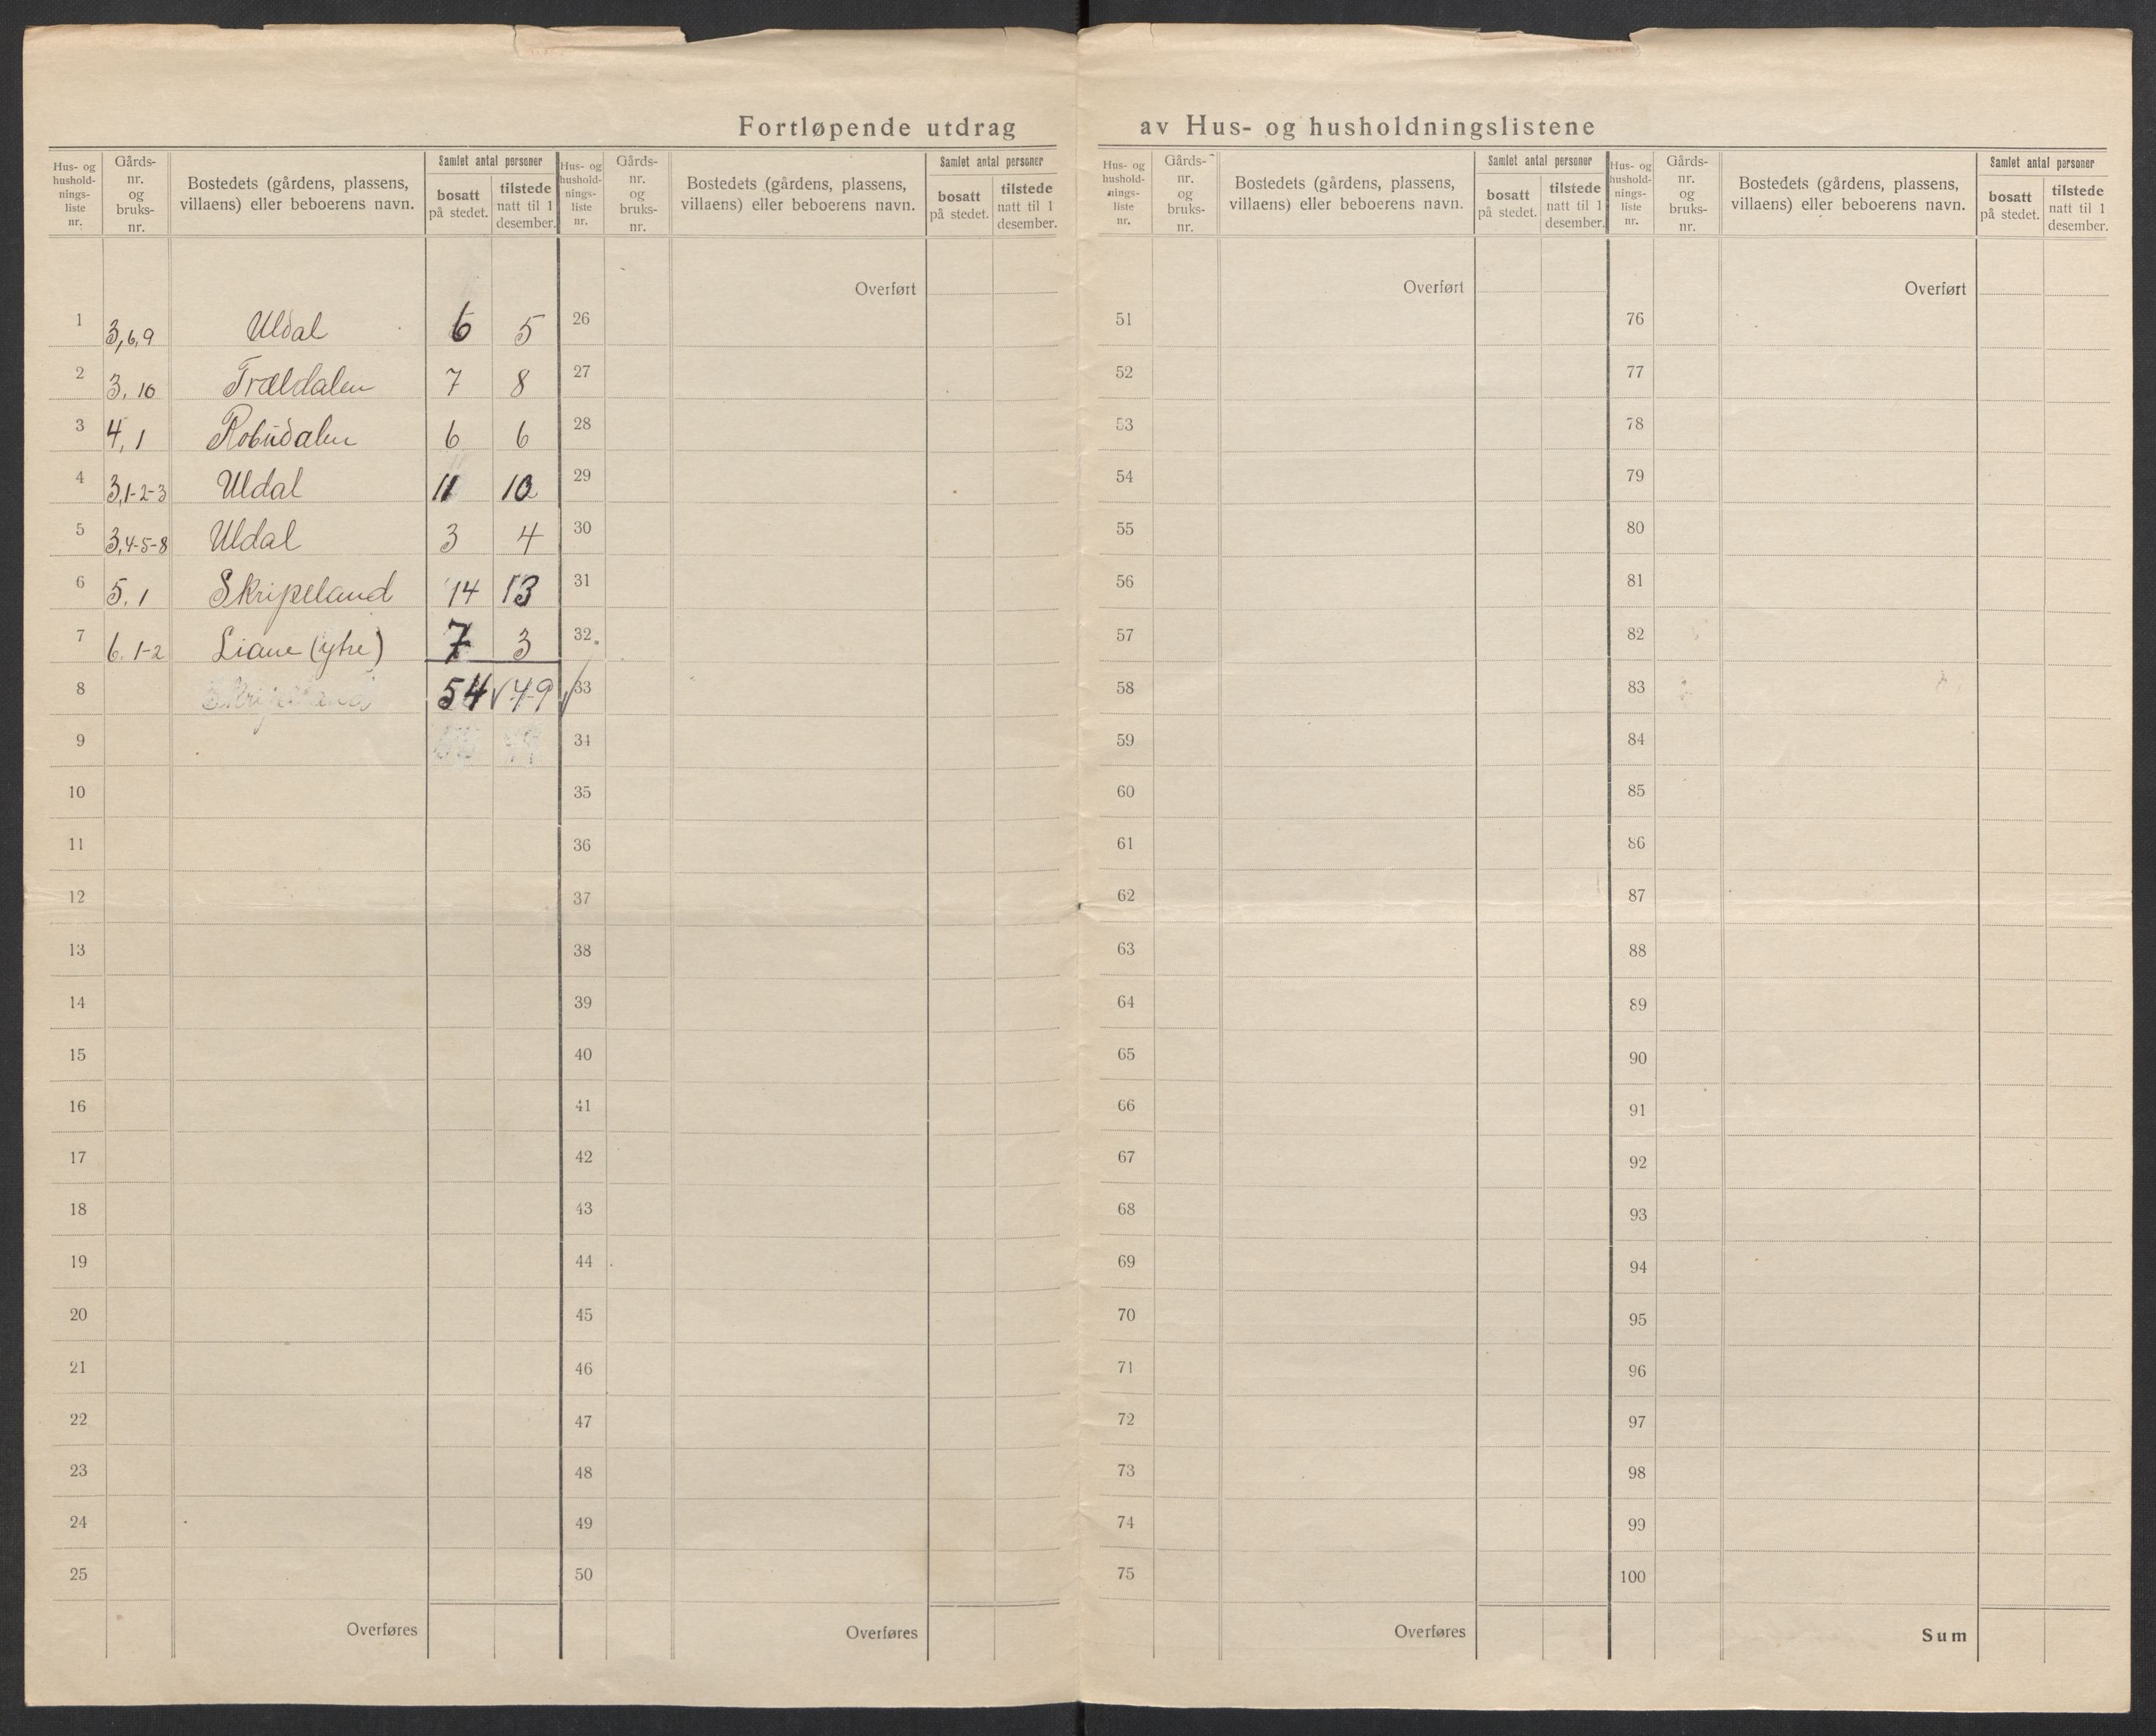 Fortløpende utdrag av Hus- og husholdningslistene
Hus- og husholdnings-liste nr. | Gårds-nr. og bruks-nr. | Bostedets (gårdens, plassens, villaens) eller beboerens navn. | Samlet antal personer | bosatt på stedet. | tilstede natt til 1 desember.
Hus- og husholdnings-liste nr. | Gårds-nr. og bruks-nr. | Bostedets (gårdens, plassens, villaens) eller beboerens navn. | Samlet antal personer | bosatt på stedet. | tilstede natt til 1 desember.
Hus- og husholdnings-liste nr. | Gårds-nr. og bruks-nr. | Bostedets (gårdens, plassens, villaens) eller beboerens navn. | Samlet antal personer | bosatt på stedet. | tilstede natt til 1 desember.
Hus- og husholdnings-liste nr. | Gårds-nr. og bruks-nr. | Bostedets (gårdens, plassens, villaens) eller beboerens navn. | Samlet antal personer | bosatt på stedet. | tilstede natt til 1 desember.
Overført Overført Overført
1 3,6,9 Uldal 6 5 26 51 76
2 3,10 Trældalen 7 8 27 52 77
3 4,1 Robudalen 6 6 28 53 78
4 3,1-2-3 Uldal 11 10 29 54 79
5 3,4-5-8 Uldal 3 4 30 55 80
6 5.1 Skripeland 14 13 31 56 81
7 6.1-2 Liane (ytre) 7 3 32 57 82
8 Skripeland 54 √ 49 √ 33 58 83
9 34 59 84
10 35 60 85
11 36 61 86
12 37 62 87
13 38 63 88
14 39 64 89
15 40 65 90
16 41 66 91
17 42 67 92
18 43 68 93
19 44 69 94
20 45 70 95
21 46 71 96
22 47 72 97
23 48 73 98
24 49 74 99
25 50 75 100
Overføres Overføres Overføres Sum